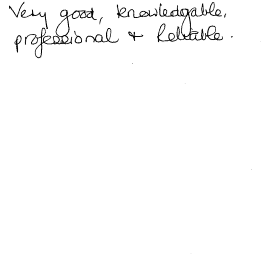 Very good, knowledgable,
professional + Reliable.